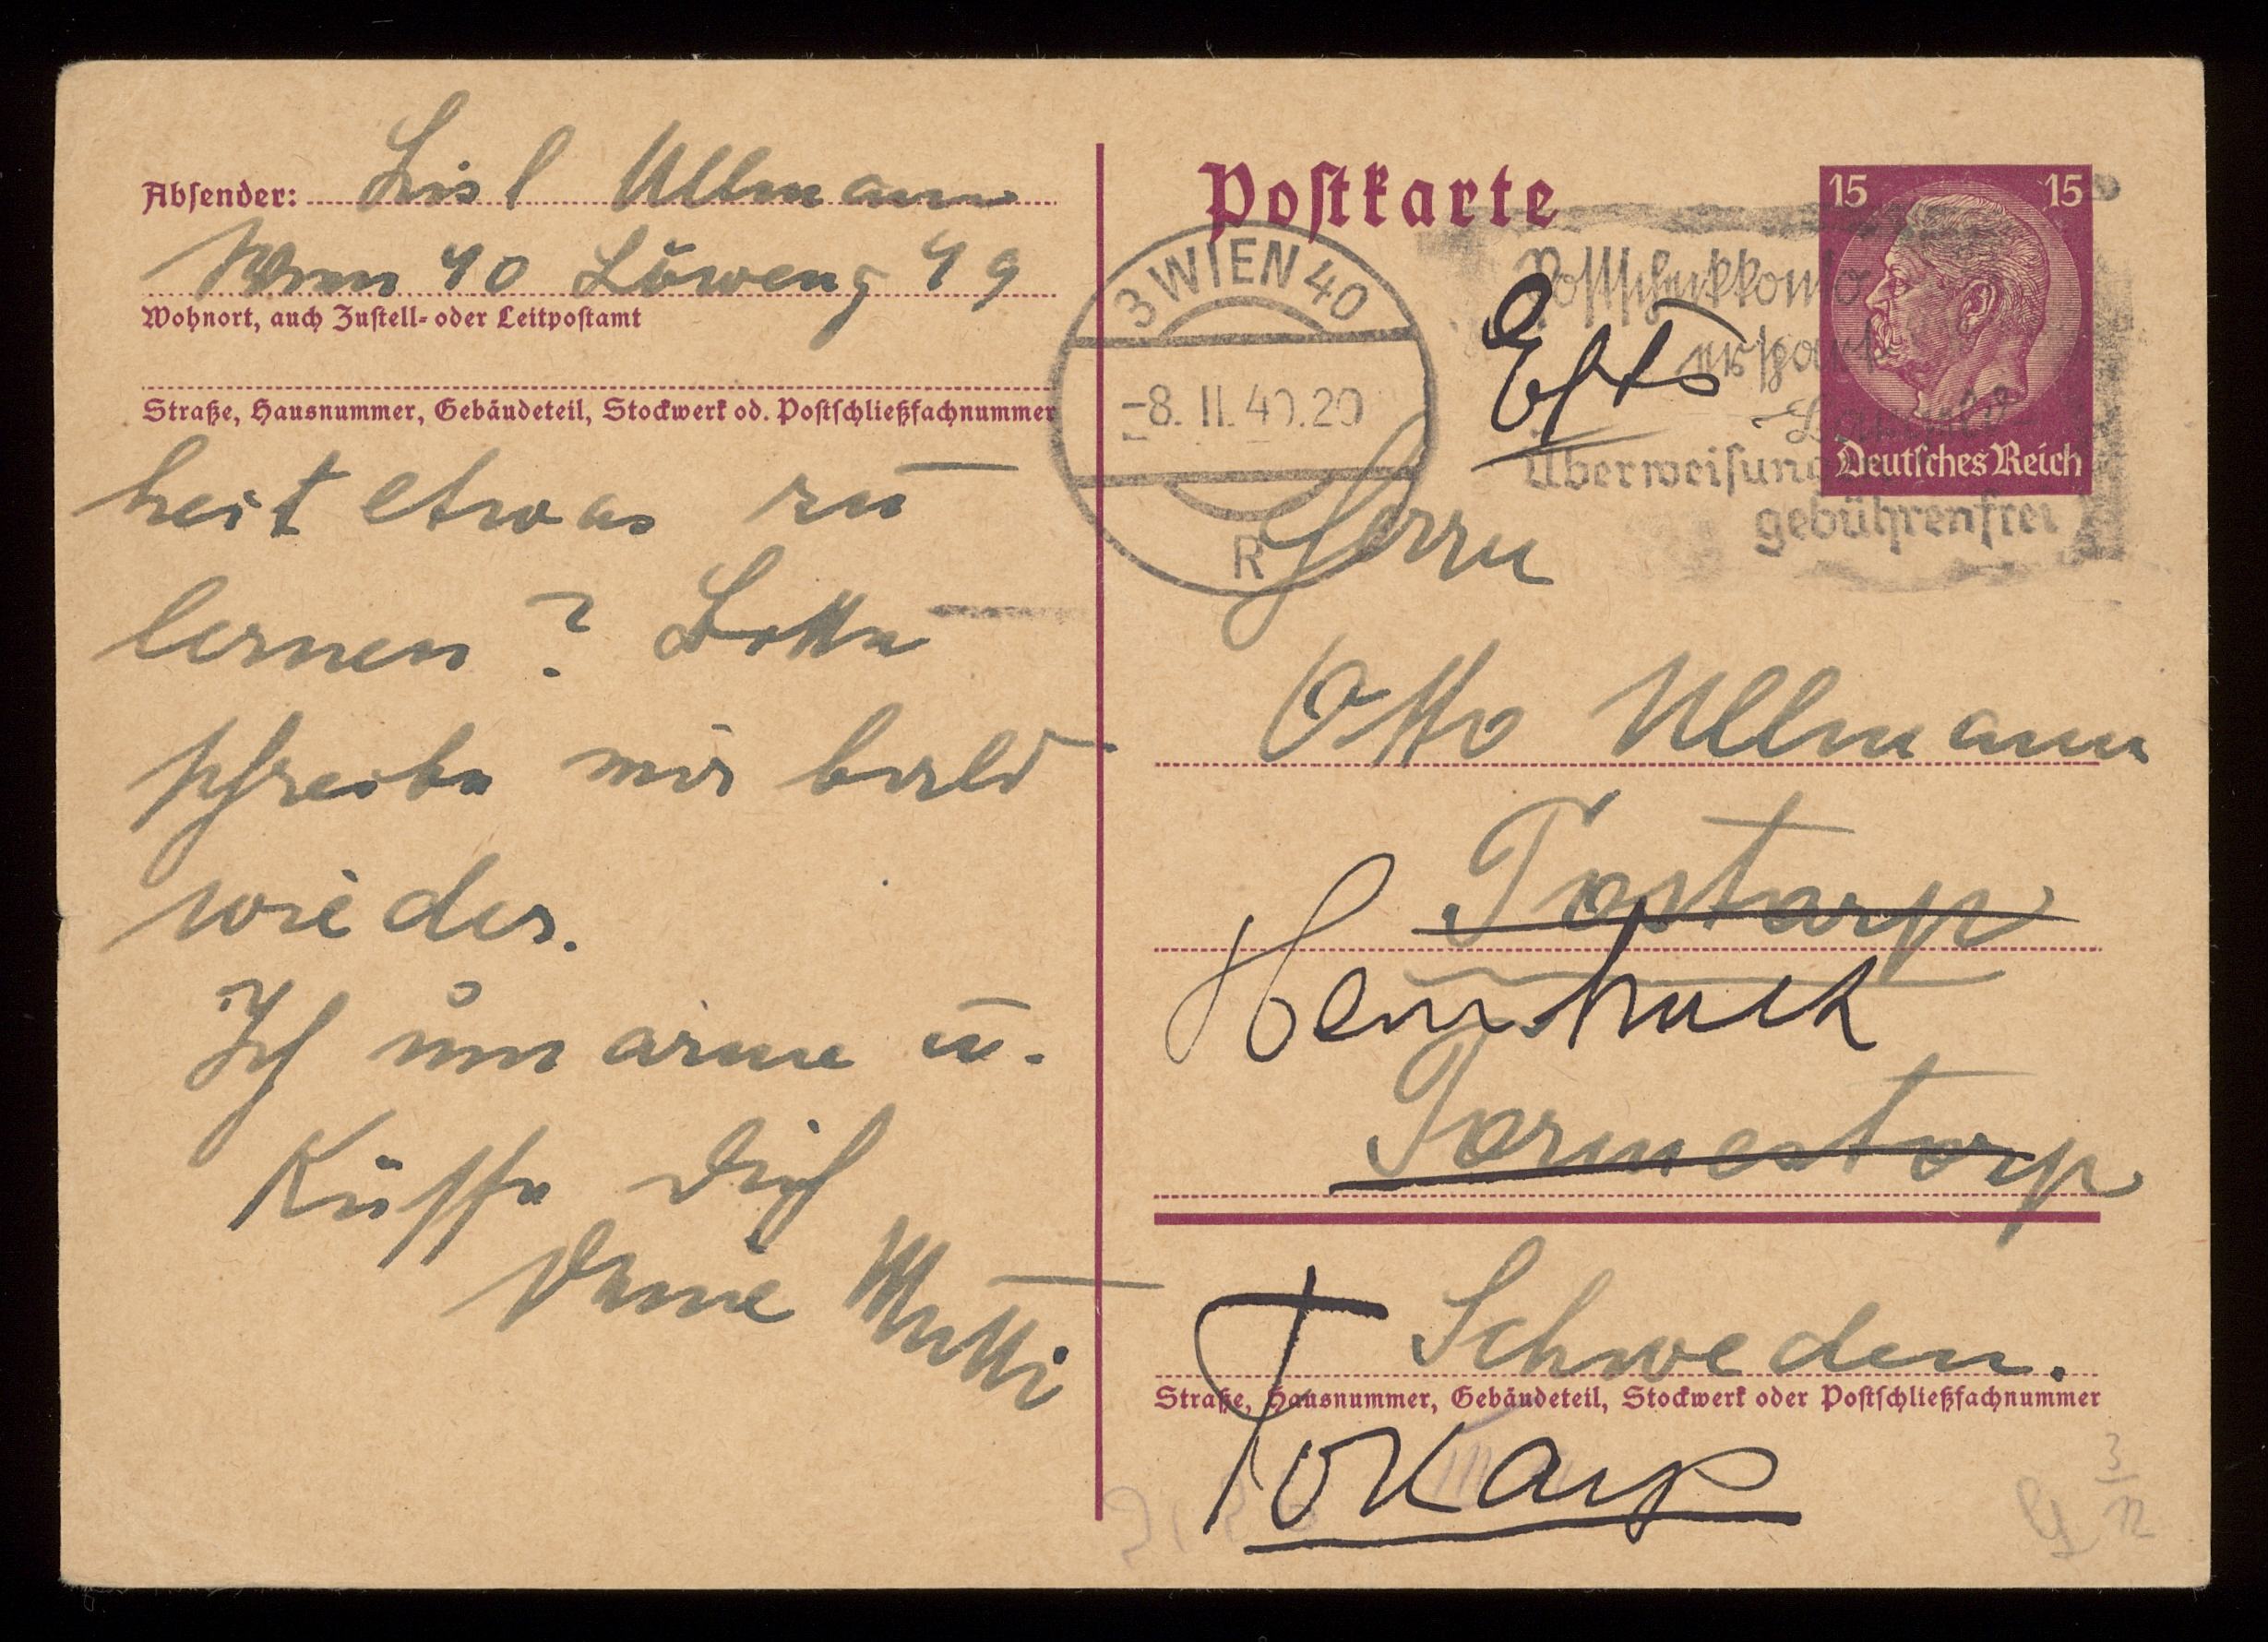 Absender: Lisl Ullmann
Wien 40 Löweng 49
Wohnort, auch Zustell- oder Leitpostamt
Straße, Hausnummer, Gebäudeteil, Stockwerk od. Postschließfachnummer
heit etwas zu
lernen? Bitte
schreibe mir bald
wieder.
Ich umarme u.
Küsse Dich
Deine Mutti
Postkarte
15 15
Deutsches Reich
3 WIEN 40
-8. II. 40. 20
R
Postscheckkonto
erspart
Überweisung
gebührenfrei
Herrn
Otto Ullmann
Tostarp
Tormestorp
Schweden.
Straße, Hausnummer, Gebäudeteil, Stockwerk oder Postschließfachnummer
Torkarp
3
12